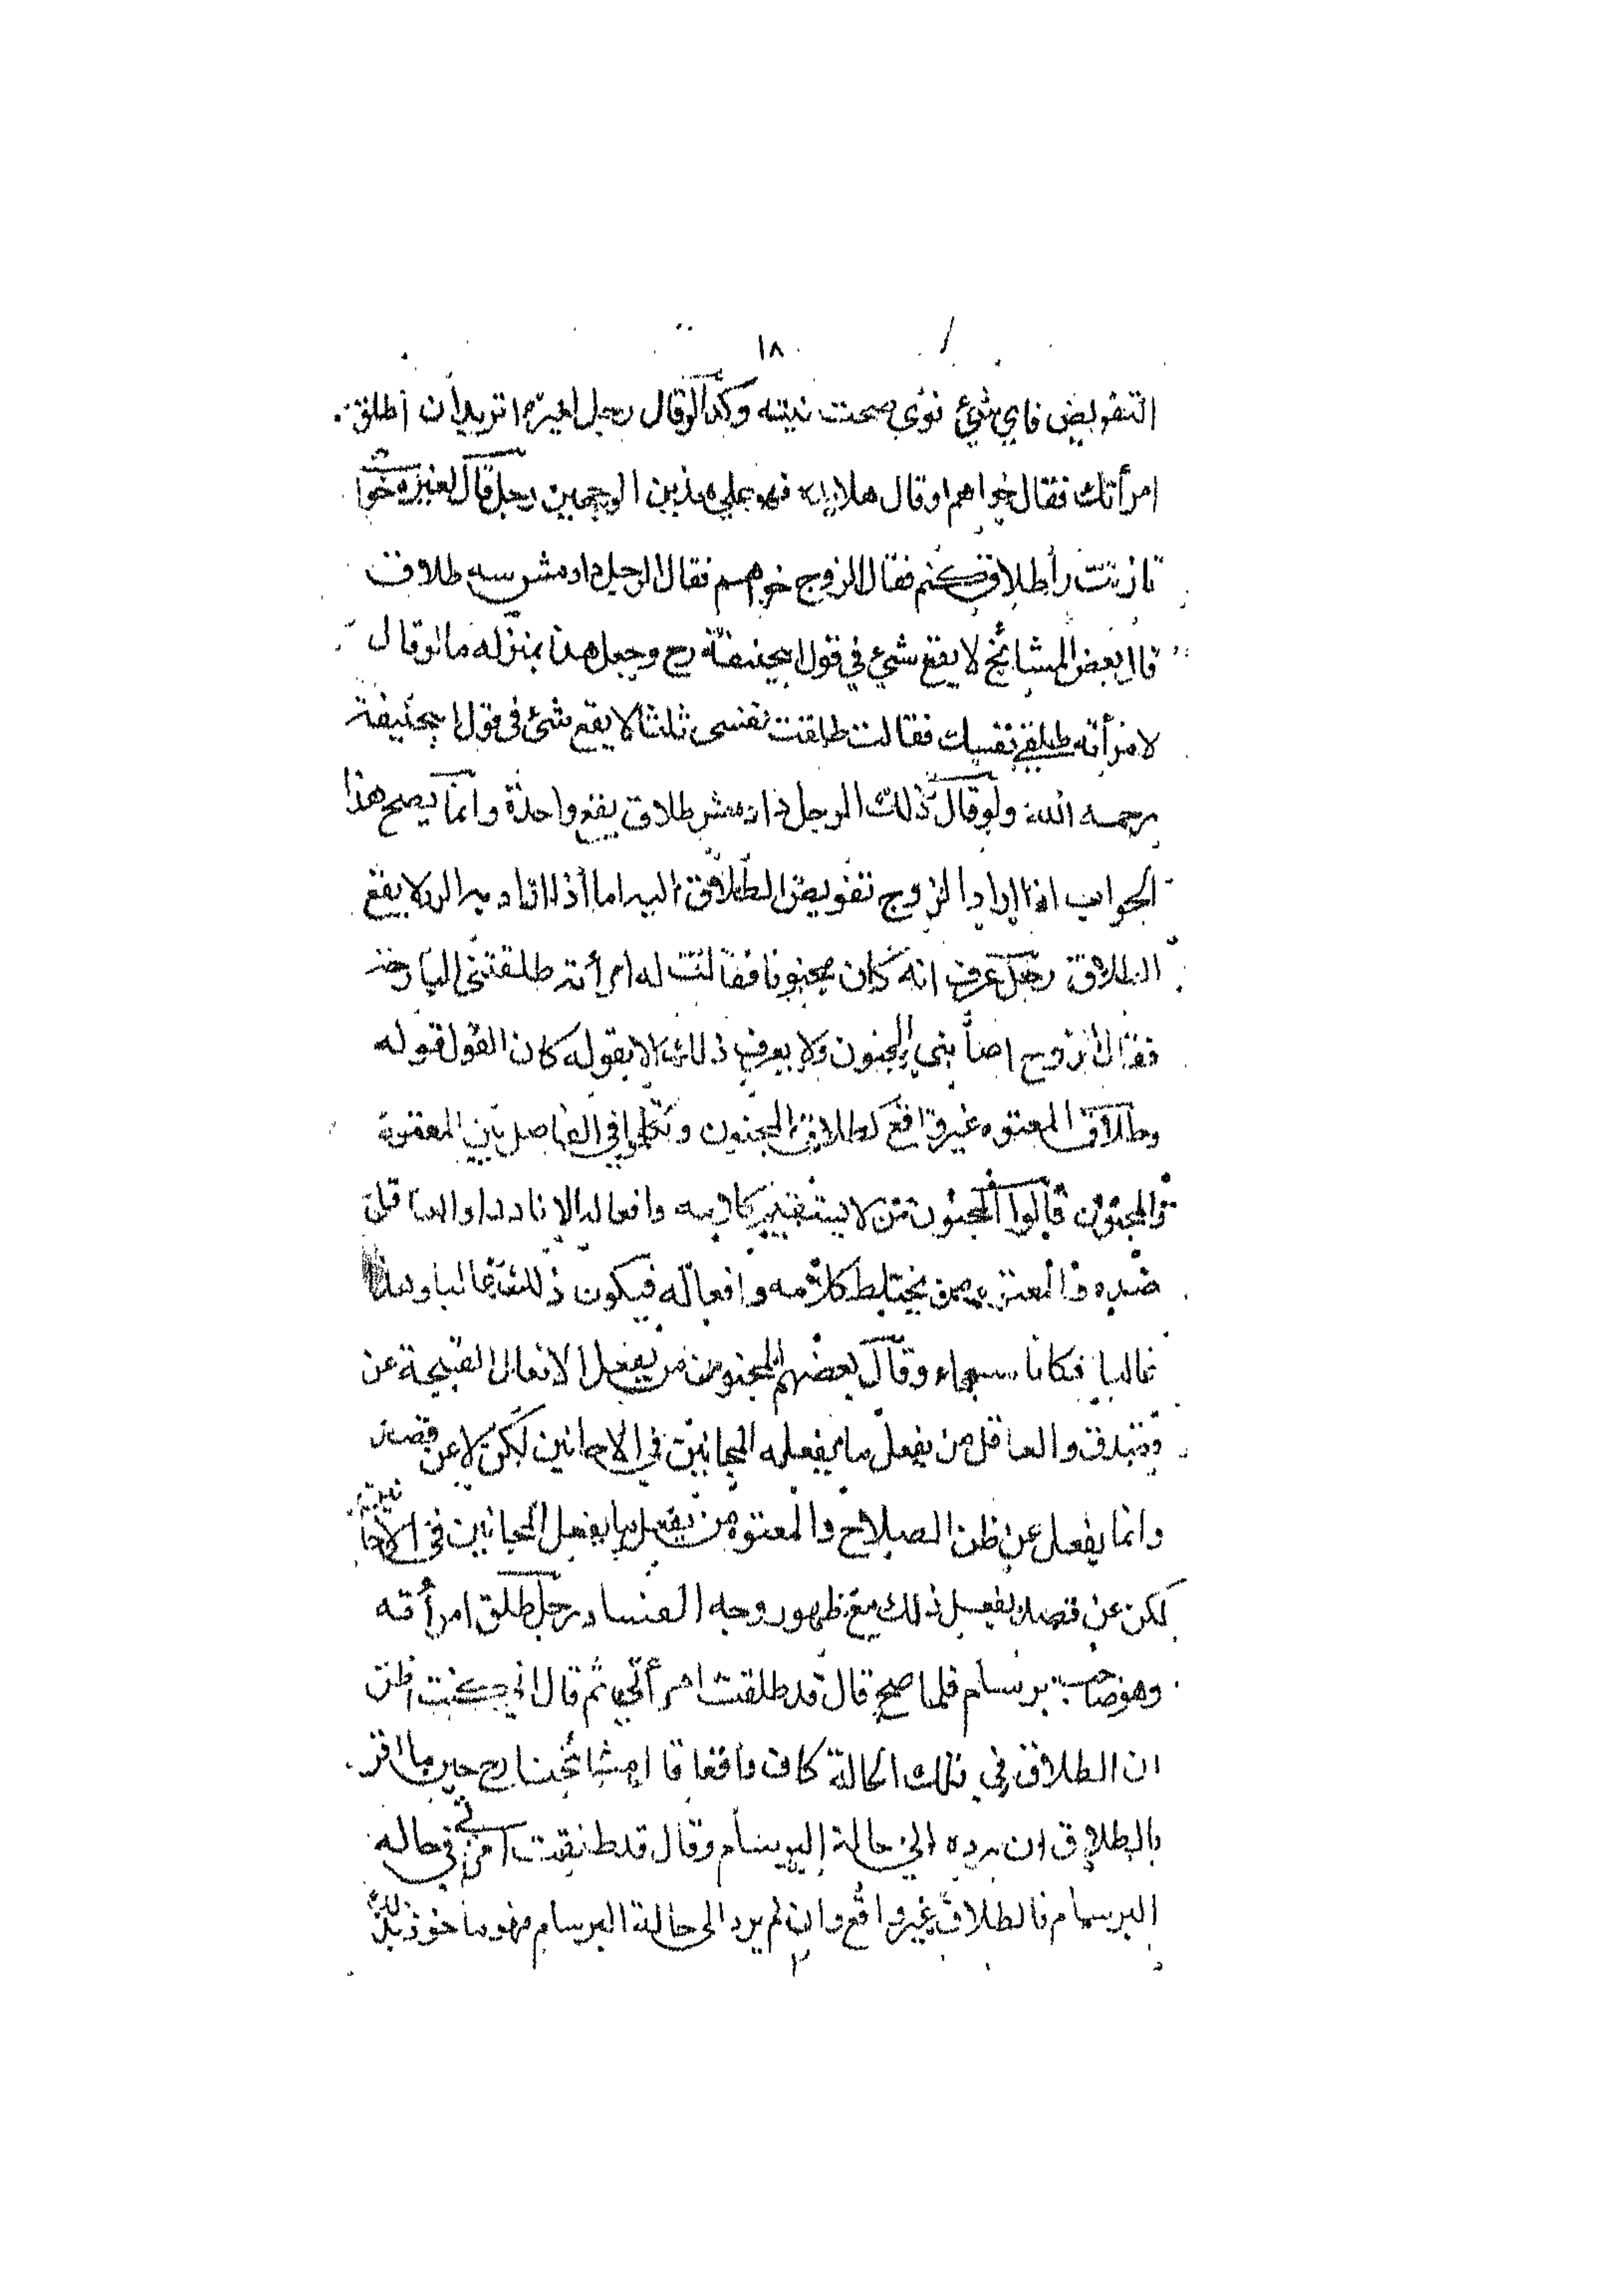 ١٨
التفويض فاي شئ نوى صحت نيته وكذا لو قال رجل لغيره اتريد ان اطلق
امرأتك فقال خواهم او قال هلا فهو على هذين الوجهين رجل قال لغيره خوا
تا زنت را طلاق كنم فقال الزوج خواهم فقال الرجل دادمش سه طلاق
قال بعض المشائخ لا يقع شئ في قول ابيحنيفة رح وجعل هذا بمنزله ما لو قال
لامرأته طلقي نفسك فقالت طلقت نفسى ثلثا لا يقع شئ فى قول ابيحنيفة
رحمه الله ولو قال ذلك الرجل دادمش طلاق يقع واحدة وانما يصح هذا
الجواب اذا اراد الزوج تفويض الطلاق اليه اما اذا اراد به الرد لا يقع
الطلاق رجل عرف انه كان مجنونا فقالت له امرأته طلقتني البارحة
فقال الزوج اصابني الجنون ولا يعرف ذلك الا بقوله كان القول قوله
وطلاق المعتوه غير واقع كطلاق المجنون وتكلموا في الفاصل بين المعتوه
والمجنون قالوا المجنون من لا يستقيم كلامه وافعاله الا نادرا والعاقل
ضده والمعتوه من يختلط كلامه وافعاله فيكون ذلك غالبا وهذا
غالبا فكانا سواء وقال بعضهم المجنون من يفعل الافعال القبيحة عن
قصد والعاقل من يفعل ما يفعله المجانين في الاحانين لكن لا عن قصد
وانما يفعل عن ظن الصلاح والمعتوه من يفعل ما يفعل المجانين فى الاحانين
لكن عن قصد يفعل ذلك مع ظهور وجه الفساد رجل طلق امرأته
وهو صاحب برسام فلما صح قال قد طلقت امرأتي ثم قال اني كنت اظن
ان الطلاق في تلك الحالة كان واقعا قال مشائخنا رح حين ما اقر
بالطلاق ان رده الى حالة البرسام وقال قد طلقت امرأتي في حاله
البرسام فالطلاق غير واقع وان لم يرد الى حالة البرسام فهو ماخوذ بذلك